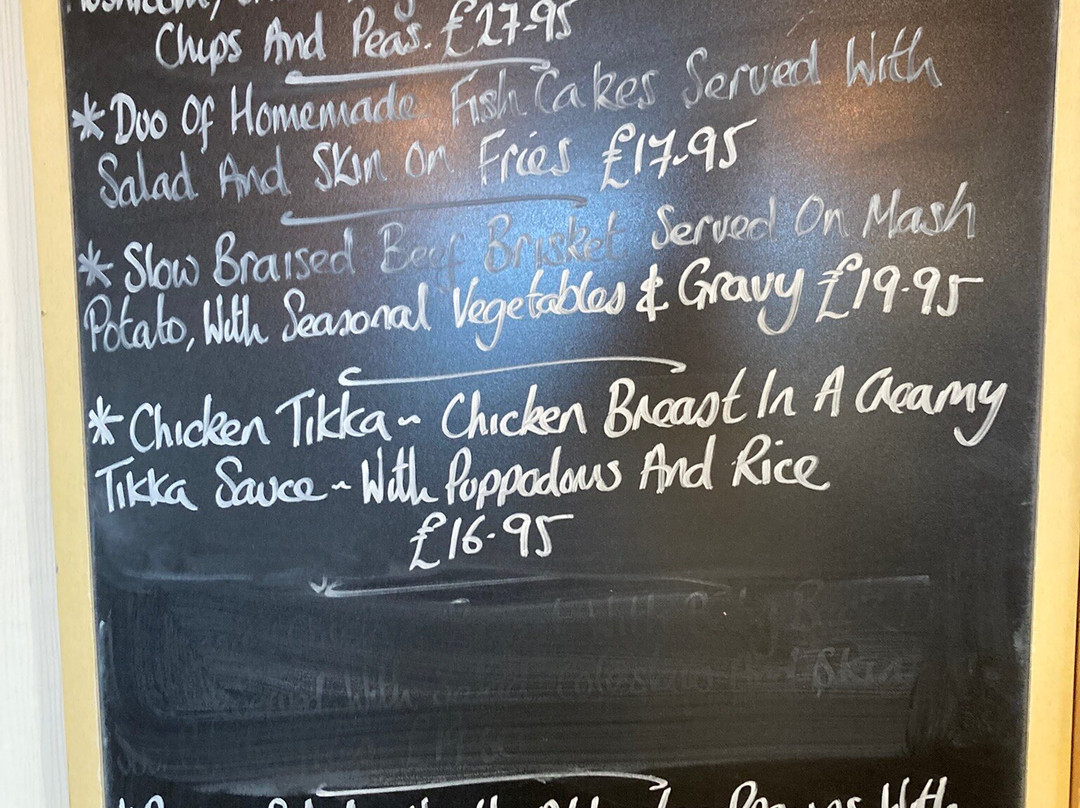 Chips And Peas. £27.95
*Duo Of Homemade Fish Cakes Served With
Salad And Skin On Fries £17.95
*Slow Braised Beef Brisket Served On Mash
Potato, With Seasonal Vegetables & Gravy £19.95
*Chicken Tikka ~ Chicken Breast In A Creamy
Tikka Sauce ~ With Poppodoms And Rice
£16.95
With Coleslaw And Skin
With